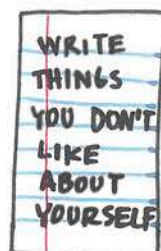 WRITE
THINGS
YOU DON'T
LIKE
ABOUT
YOURSELF